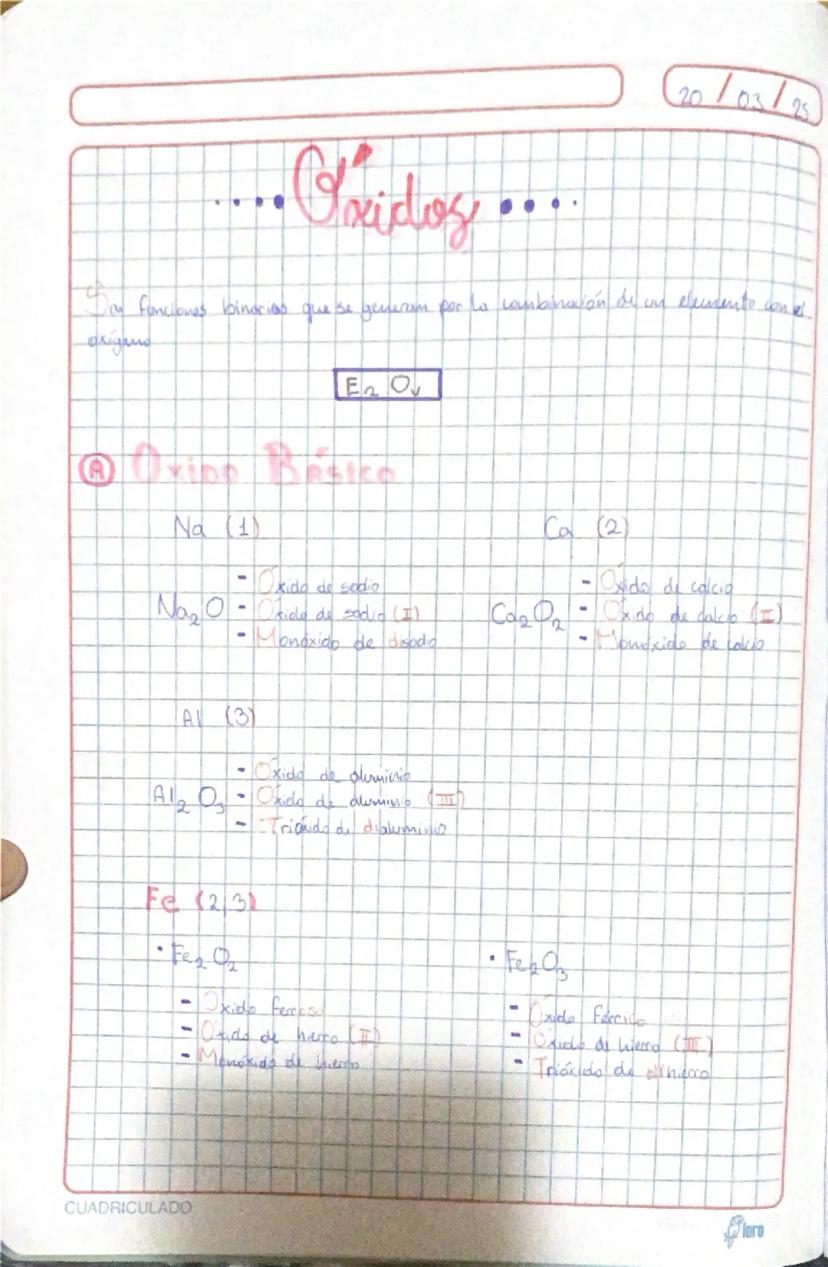 20 / 03 / 25
Óxidos
Son funciones binarias que se generan por la combinación de un elemento con el
oxígeno
E₂ Oᵥ
A Óxido Básico
Na (1) Ca (2)
- Óxido de sodio - Óxido de calcio
Na₂O - Óxido de sodio (I) Ca₂O₂ - Óxido de calcio (II)
- Monóxido de disodo - Monóxido de calcio
Al (3)
- Óxido de aluminio
Al₂O₃ - Óxido de aluminio (III)
- Trióxido de dialuminio
Fe (2,3)
• Fe₂O₂ • Fe₂O₃
- Óxido ferroso - Óxido Férrico
- Óxido de hierro (II) - Óxido de hierro (III)
- Monóxido de hierro - Trióxido de dihierro
CUADRICULADO
loro